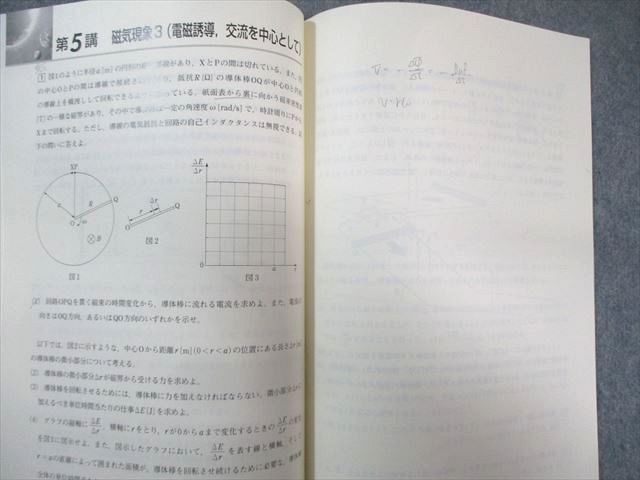 第5講 磁気現象3(電磁誘導,交流を中心として)
1 図1のように半径a[m]の円形の
があり,XとPの間は切れている。また,
の中心OとPの間は導線で接続
抵抗R[Ω]の導体棒OQが中心Oと円形
の導線上を接触して回転できる
ている。紙面表から裏に向かう磁束密度
[T]の一様な磁界があり,その中で導
一定の角速度ω[rad/s]で,時計周りにPから
Xまで回転する。ただし,導線の電気抵抗と回路の自己インダクタンスは無視できる。以
下の問いに答えよ。
XP
a
R
Q
O
ω
B
図1
Δr
r
Q
O
図2
ΔE
Δr
0
a
r
図3
(1) 回路OPQを貫く磁束の時間変化から,導体棒に流れる電流を求めよ。また,電流の
向きはOQ方向,あるいはQO方向のいずれかを示せ。
以下では,図2に示すような,中心Oから距離r[m](0<r<a)の位置にある長さΔr[m]
の導体棒の微小部分について考える。
(2) 導体棒の微小部分Δrが磁界から受ける力を求めよ。
(3) 導体棒を回転させるためには,導体棒に力を加えなければならない。微小部分Δrに
加えるべき単位時間当たりの仕事ΔE[J]を求めよ。
(4) グラフの縦軸にΔE/Δr,横軸にrをとり,rが0からaまで変化するときのΔE/Δrの
を図3に図示せよ。また,図示したグラフにおいて,ΔE/Δrを表す線と横軸,そして
r=aの直線によって囲まれた面積が,導体棒を回転させ続けるために必要な,導体棒
全体の単位時間